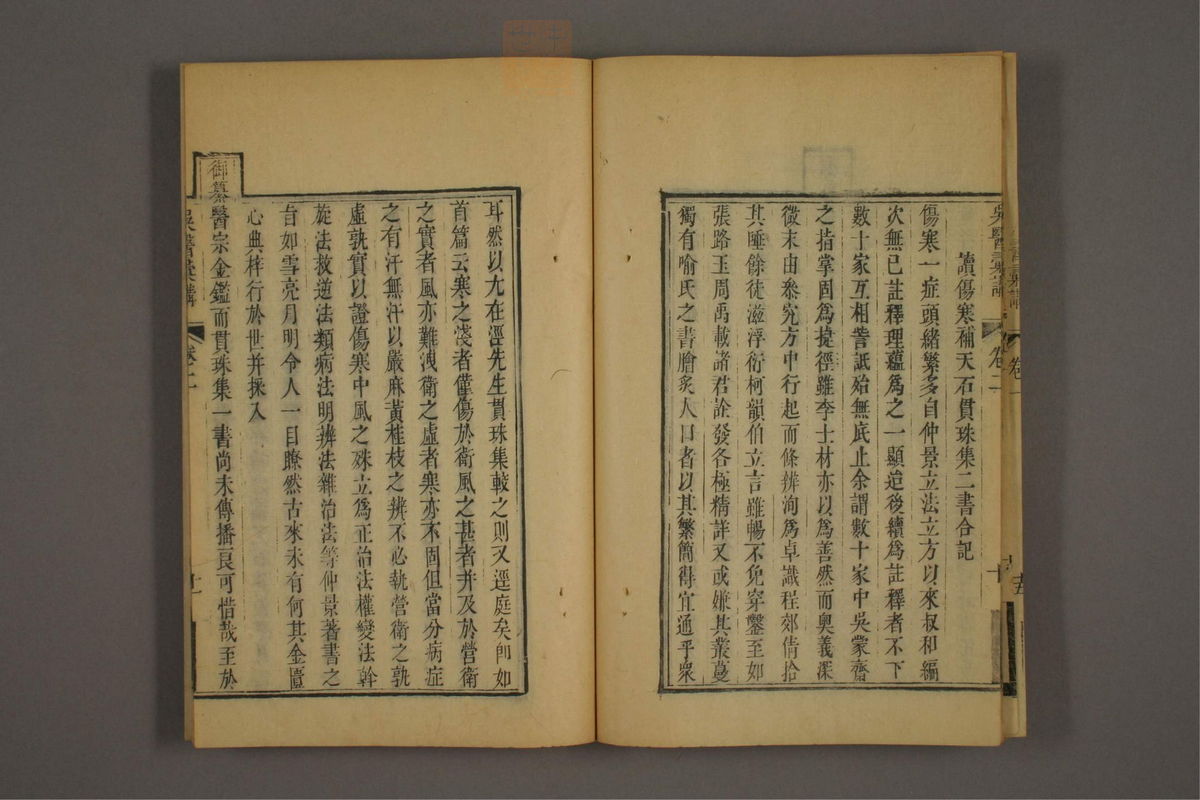 讀傷寒補天石貫珠集二書合記
傷寒一症頭緒繁多自仲景立法立方以來叔和編
次無已註釋理蘊爲之一顯迨後續爲註釋者不下
數十家互相訾詆殆無底止余謂數十家中吳蒙齋
之指掌固爲捷徑雖李士材亦以爲善然而奧義深
微末由叅究方中行起而條辨洵爲卓識程郊倩拾
其唾餘徒滋浮衍柯韻伯立言雖暢不免穿鑿至如
張路玉周禹載諸君詮發各極精詳又或嫌其叢蔓
獨有喻氏之書膾炙人口者以其繁簡得宜通乎衆
耳然以尤在涇先生貫珠集較之則又逕庭矣卽如
首篇云寒之淺者僅傷於衛風之甚者并及於營衛
之實者風亦難洩衛之虛者寒亦不固但當分病症
之有汗無汗以嚴麻黃桂枝之辨不必執營衛之孰
虛孰實以證傷寒中風之殊立爲正治法權變法斡
旋法救逆法類病法明辨法雜治法等仲景著書之
旨如雪亮月明令人一目瞭然古來未有何其金匱
心典梓行於世并採入
御纂醫宗金鑑而貫珠集一書尚未傳播良可惜哉至於
吳醫彙講
卷二